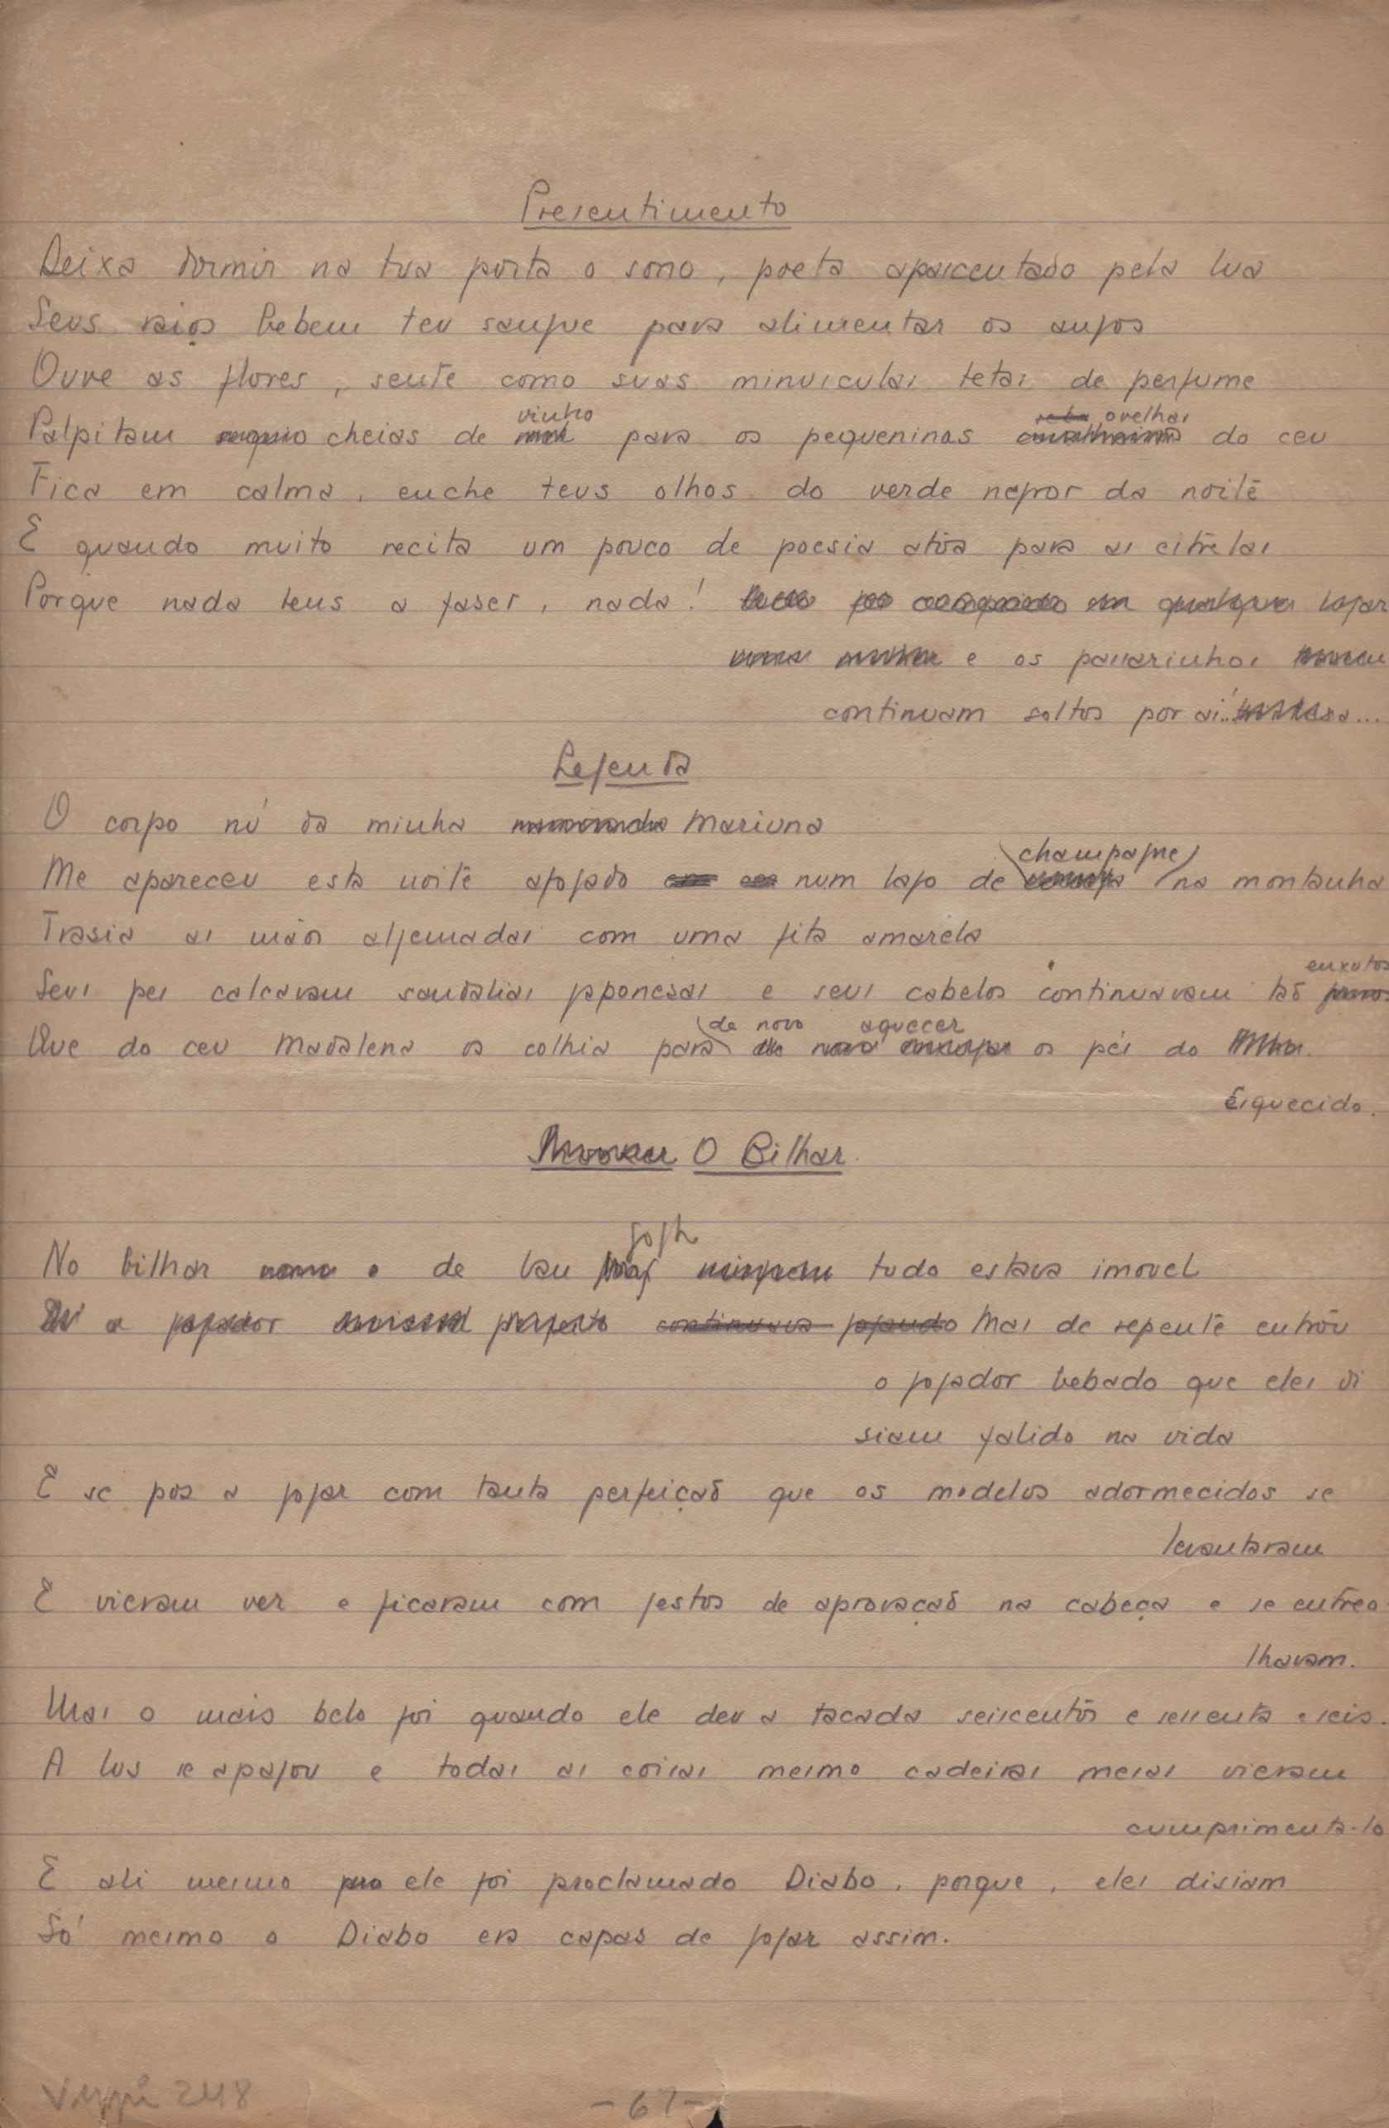 Presentimento
Deixa dormir na tua porta o sono, poeta apascentado pela lua
Seus raios bebem teu sangue para alimentar os anjos
Ouve as flores, sente como suas minusculas tetas de perfume
vinho ovelhas
Palpitam cheias de para os pequeninas do ceu
Fica em calma, enche teus olhos do verde negror da noite
E quando muito recita um pouco de poesia atôa para as estrelas
Porque nada tens a faser, nada! em qualquer lugar
e os passarinhos
continuam soltos por aí...
Legenda
O corpo nú da minha Mariana
champagne
Me apareceu esta noite afogado num lago de na montanha
Trasia as mãos algemadas com uma fita amarela
enxutos
Seus pes calcavam sandalias japonesas e seus cabelos continuavam taõ
de novo aquecer
Que do ceu Madalena os colhia para os pés do
Esquecido.
O Bilhar
No bilhar de tudo estava imovel
a jogador continuava jogando Mas de repente entrou
o jogador bebado que eles di
siam falido na vida
E se pos a jogar com tanta perfeiçaõ que os modelos adormecidos se
levantaram
E vieram ver e ficaram com gestos de aprovaçaõ na cabeça e se entreo
lhavam.
Mas o mais belo foi quando ele deu a tacada seiscentos e sessenta e seis.
A lus se apagou e todas as coisas mesmo cadeiras mesas vieram
cumprimenta-lo
E ali mesmo ele foi proclamado Diabo, porque, eles disiam
Só mesmo o Diabo era capas de jogar assim.
248
-67-